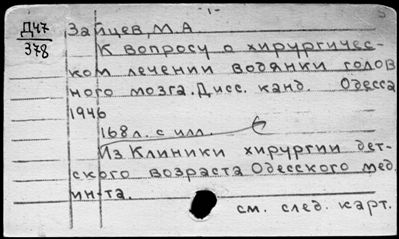 -1-
Д47
378
Зайцев, М.А.
К вопросу о хирургичес-
ком лечении водянки голов
ного мозга. Дисс. канд. Одесса
1946
168 л. с илл.
Из Клиники хирургии дет-
ского возраста Одесского мед.
ин-та.
см. след. карт.